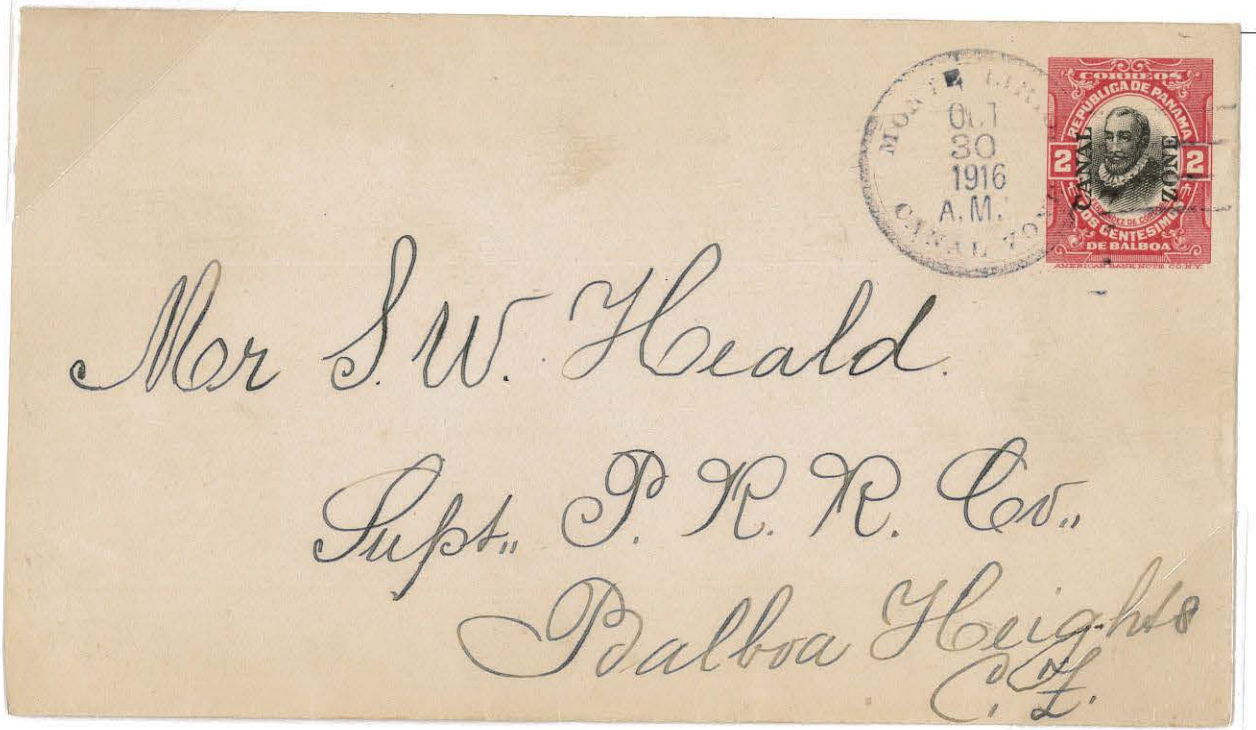 MONTE LIRIO
OCT
30
1916
A.M.
CANAL ZONE
CORREOS
REPUBLICA DE PANAMA
2 CANAL ZONE 2
DOS CENTESIMOS
DE BALBOA
AMERICAN BANK NOTE CO. N.Y.
Mr S. W. Heald.
Supt.. P. R. R. Co..
Balboa Heights
C. Z.